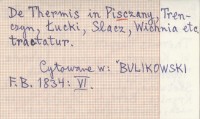 De Thermis in Pisczany, Tren-
czyn, Łucki, Slacz, Wichnia etc
tractatur.
Cytowane w: "BULIKOWSKI
F.B. 1834: VI.